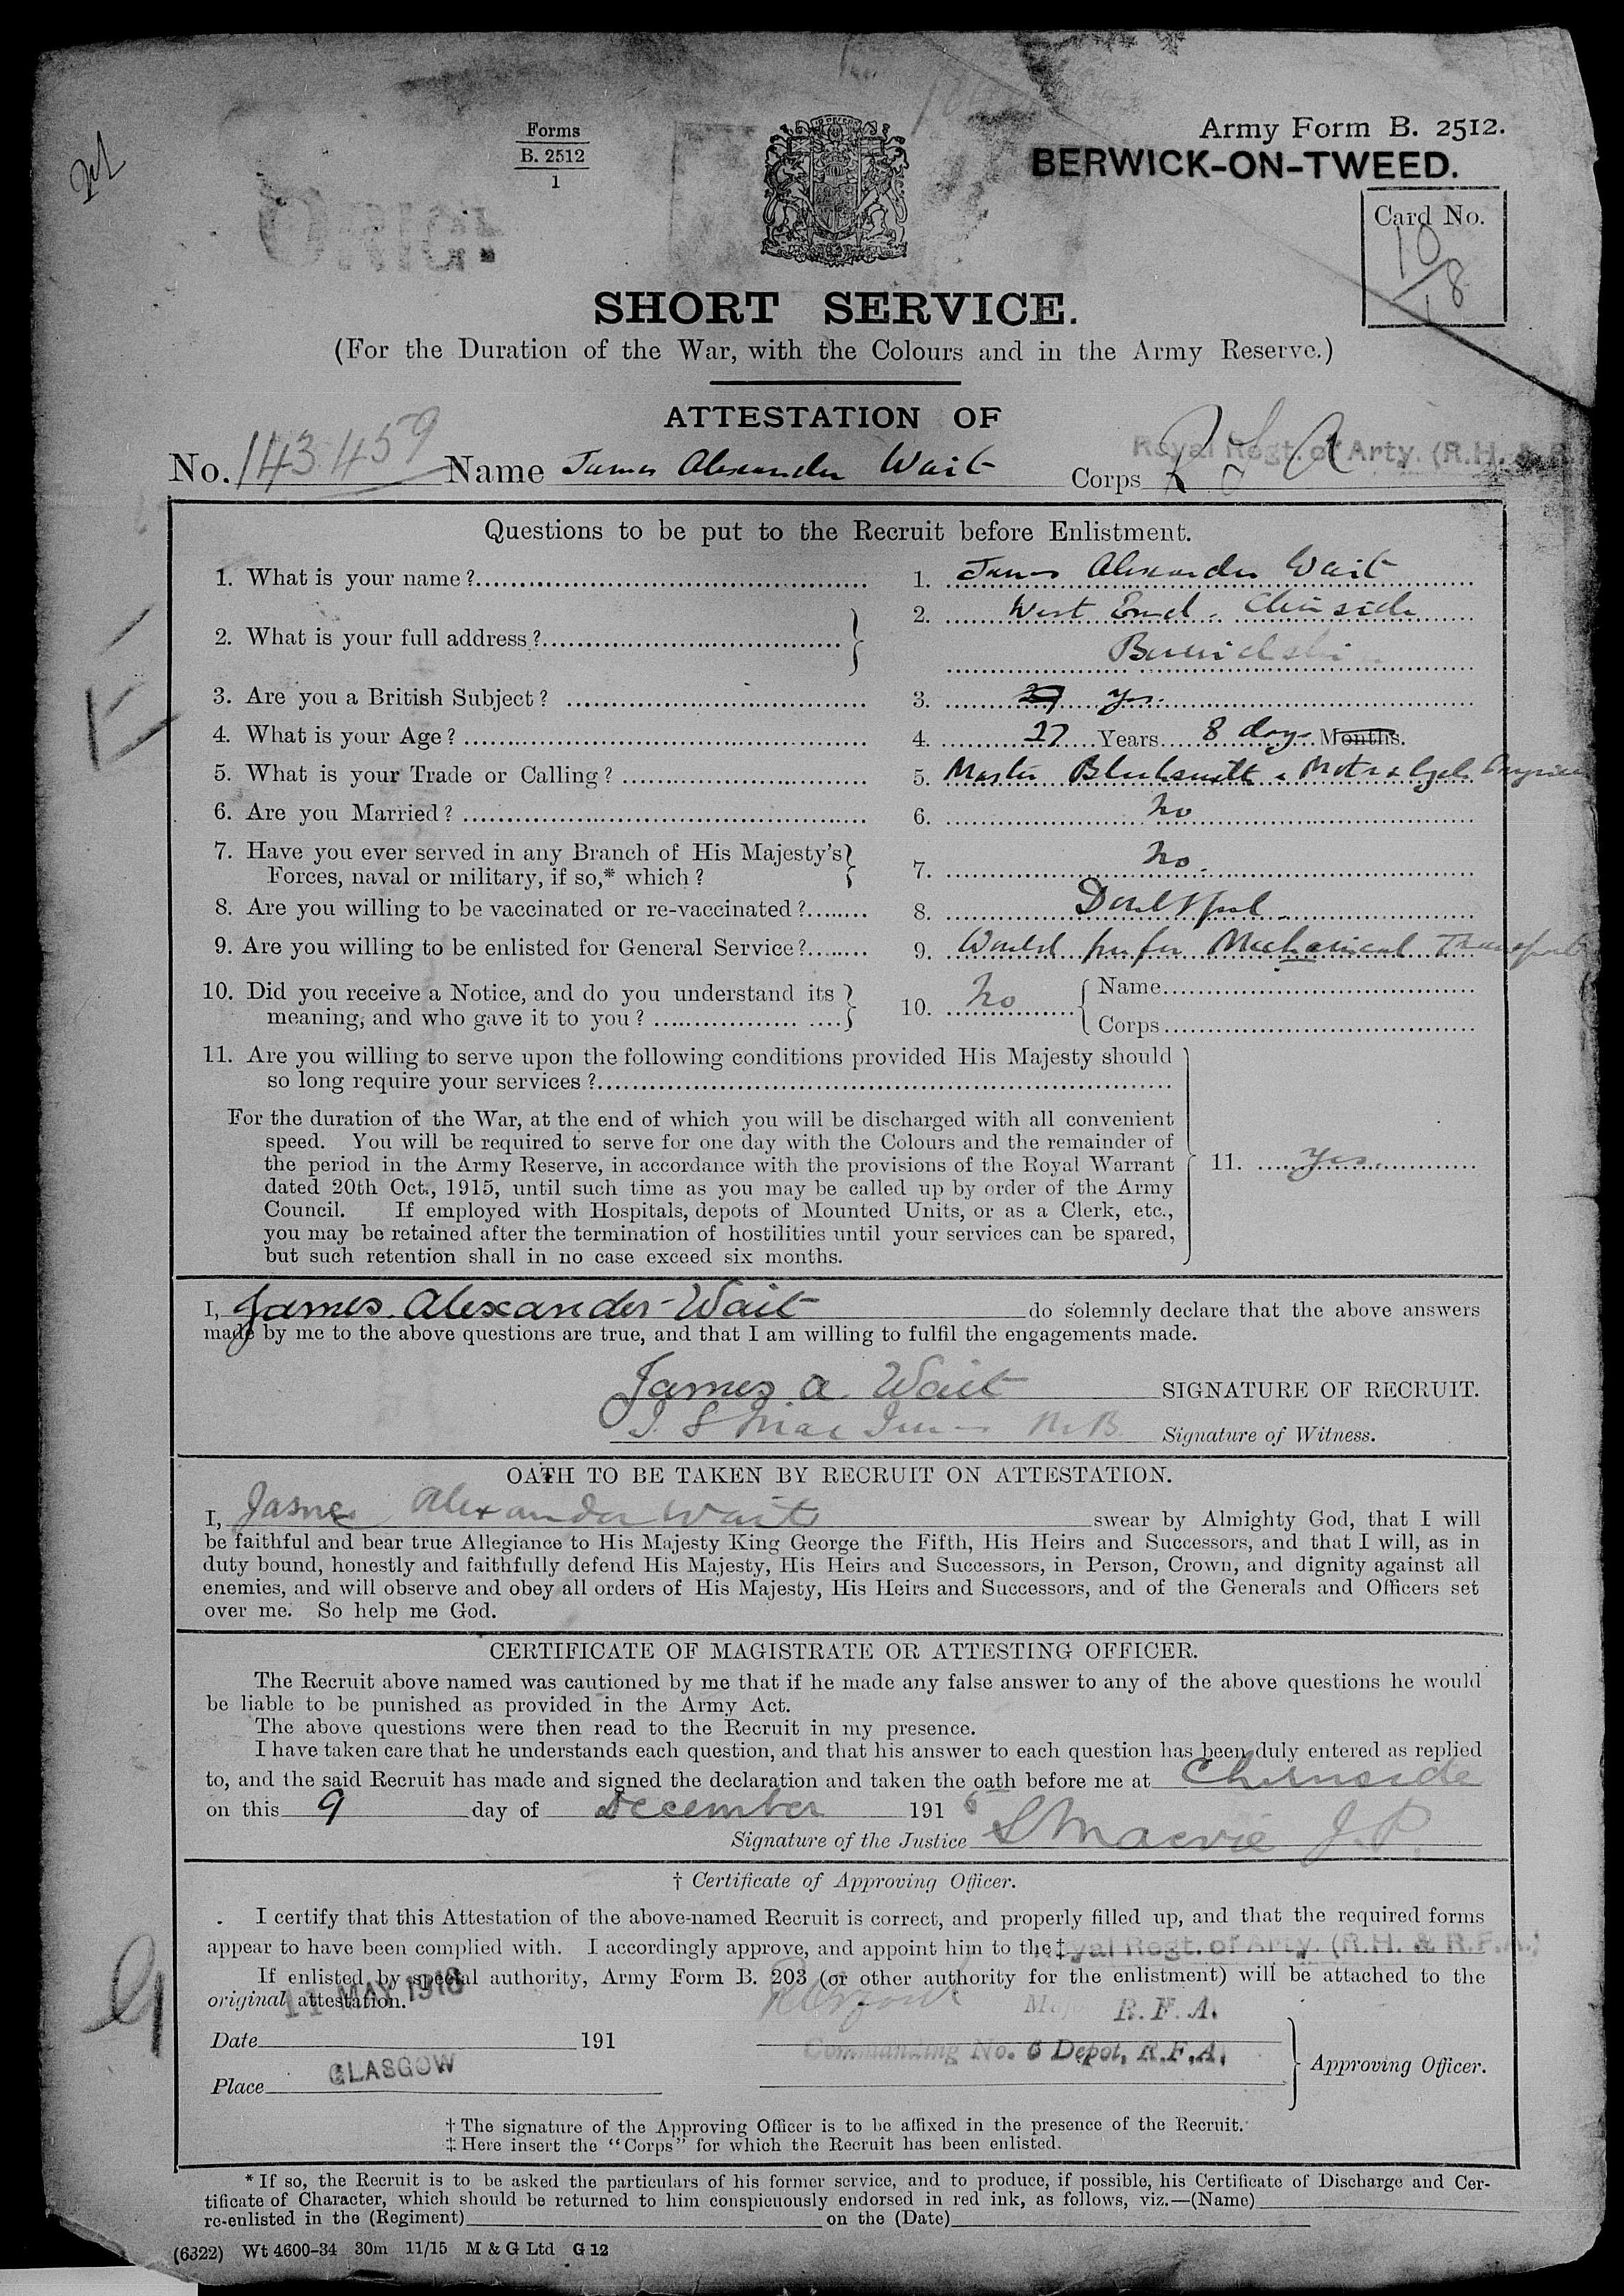 Forms
B. 2512
1
Army Form B. 2512.
BERWICK-ON-TWEED.
Card No.
10
18
SHORT SERVICE.
(For the Duration of the War, with the Colours and in the Army Reserve.)
ATTESTATION OF
No. 143459 Name James Alexander Wait Corps R F A
Royal Regt. of Arty. (R.H. & R
Questions to be put to the Recruit before Enlistment.
1. What is your name? 1. James Alexander Wait
2. What is your full address? 2. West End. Chirnside
Berwickshire
3. Are you a British Subject? 3. 27 Yes.
4. What is your Age? 4. 27 Years 8 days Months.
5. What is your Trade or Calling? 5. Master Blacksmith & Motor & Cycle Engineer
6. Are you Married? 6. No
7. Have you ever served in any Branch of His Majesty's
Forces, naval or military, if so,* which? 7. No.
8. Are you willing to be vaccinated or re-vaccinated? 8. Doubtful
9. Are you willing to be enlisted for General Service? 9. Would prefer Mechanical Transport
10. Did you receive a Notice, and do you understand its
meaning, and who gave it to you? 10. No { Name
Corps
11. Are you willing to serve upon the following conditions provided His Majesty should
so long require your services?
For the duration of the War, at the end of which you will be discharged with all convenient
speed. You will be required to serve for one day with the Colours and the remainder of
the period in the Army Reserve, in accordance with the provisions of the Royal Warrant
dated 20th Oct., 1915, until such time as you may be called up by order of the Army
Council. If employed with Hospitals, depots of Mounted Units, or as a Clerk, etc.,
you may be retained after the termination of hostilities until your services can be spared,
but such retention shall in no case exceed six months.
11. Yes.
I, James Alexander Wait do solemnly declare that the above answers
made by me to the above questions are true, and that I am willing to fulfil the engagements made.
James A. Wait SIGNATURE OF RECRUIT.
M.B. Signature of Witness.
OATH TO BE TAKEN BY RECRUIT ON ATTESTATION.
I, James Alexander Wait swear by Almighty God, that I will
be faithful and bear true Allegiance to His Majesty King George the Fifth, His Heirs and Successors, and that I will, as in
duty bound, honestly and faithfully defend His Majesty, His Heirs and Successors, in Person, Crown, and dignity against all
enemies, and will observe and obey all orders of His Majesty, His Heirs and Successors, and of the Generals and Officers set
over me. So help me God.
CERTIFICATE OF MAGISTRATE OR ATTESTING OFFICER.
The Recruit above named was cautioned by me that if he made any false answer to any of the above questions he would
be liable to be punished as provided in the Army Act.
The above questions were then read to the Recruit in my presence.
I have taken care that he understands each question, and that his answer to each question has been duly entered as replied
to, and the said Recruit has made and signed the declaration and taken the oath before me at Chirnside
on this 9 day of December 191
Signature of the Justice J.P.
† Certificate of Approving Officer.
I certify that this Attestation of the above-named Recruit is correct, and properly filled up, and that the required forms
appear to have been complied with. I accordingly approve, and appoint him to the‡ Royal Regt. of Arty. (R.H. & R.F.A.)
If enlisted by special authority, Army Form B. 203 (or other authority for the enlistment) will be attached to the
original attestation.
11 MAY 1916
R. F. A.
Date 191
Commanding No. 6 Depot, R.F.A.
Approving Officer.
Place GLASGOW
† The signature of the Approving Officer is to be affixed in the presence of the Recruit.
‡ Here insert the "Corps" for which the Recruit has been enlisted.
* If so, the Recruit is to be asked the particulars of his former service, and to produce, if possible, his Certificate of Discharge and Cer-
tificate of Character, which should be returned to him conspicuously endorsed in red ink, as follows, viz.—(Name)
re-enlisted in the (Regiment) on the (Date)
(6322) Wt 4600-34 30m 11/15 M & G Ltd G 12